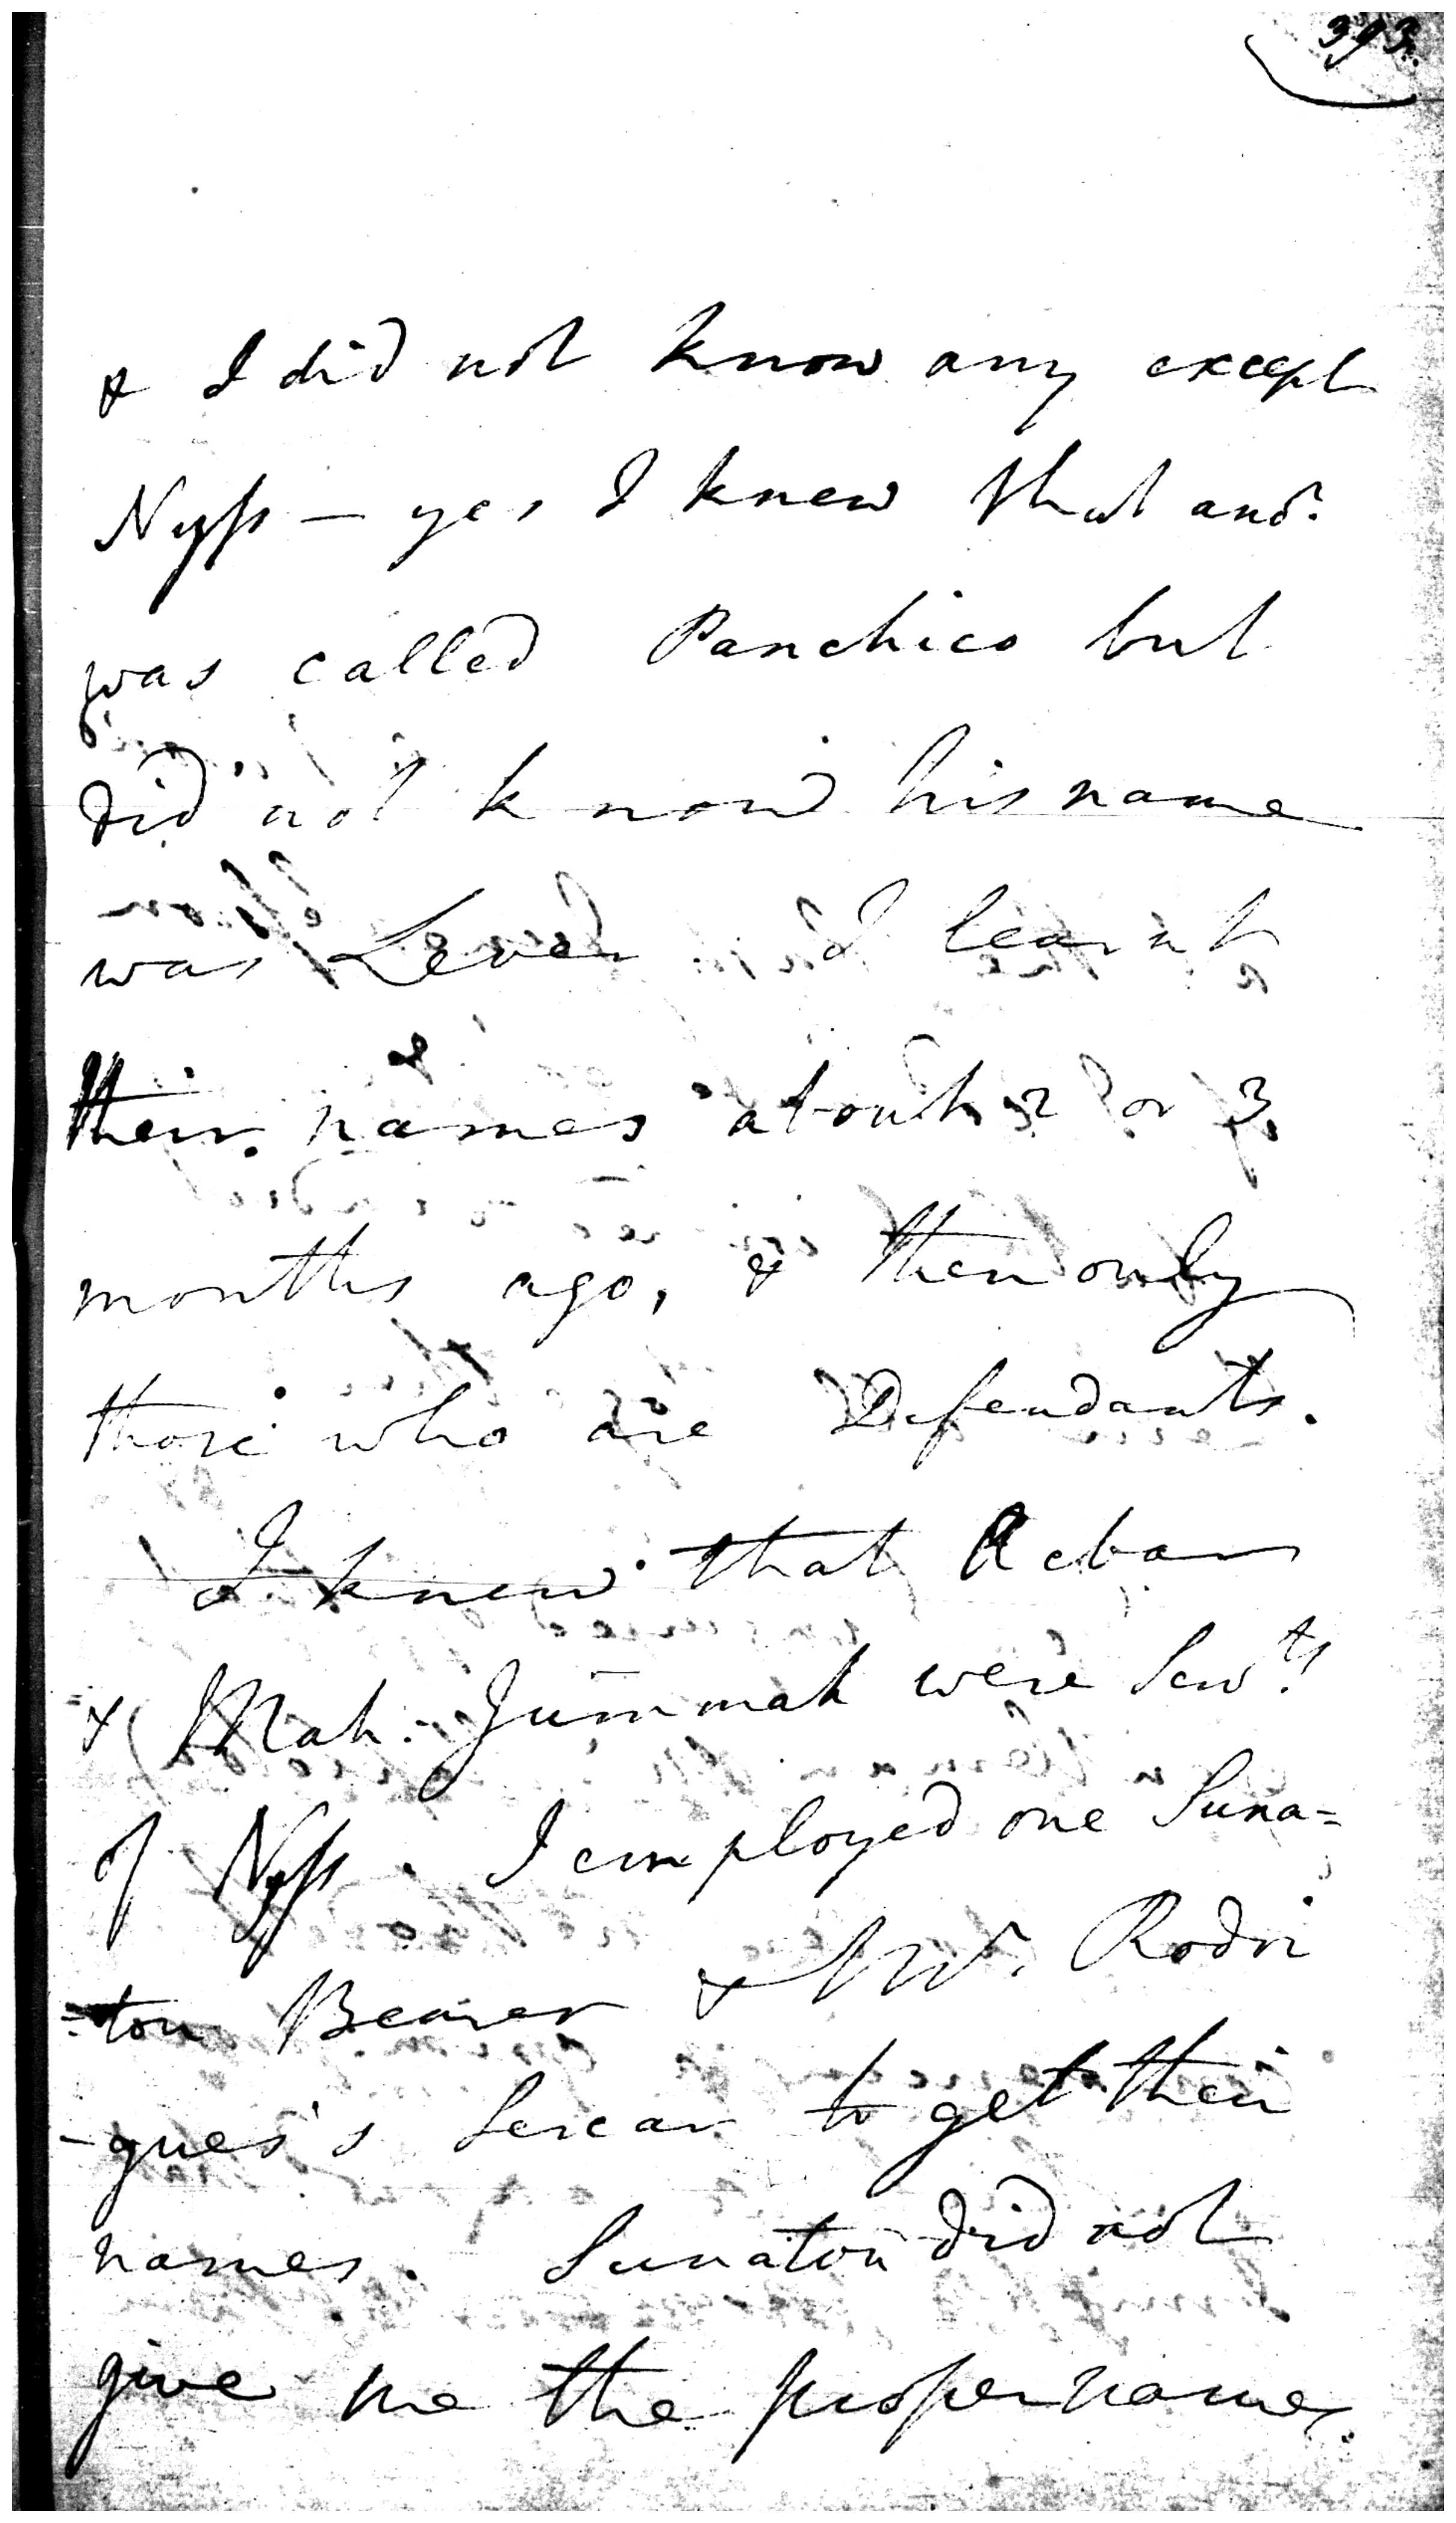 393.
& I did not know any except
Nyss — yes I knew that and.
was called Panchico but
did not know his name
was Lever I learnt
their names about 2 or 3
months ago, & then only
those who are Defendants.
I knew that Acbar
& Mah. Jummah were Servts
of Nyss. I employed one Suna=
=ton Bearer & Mr. Rodri
-gues's Sercar to get their
names. Sunaton did not
give me the proper names.